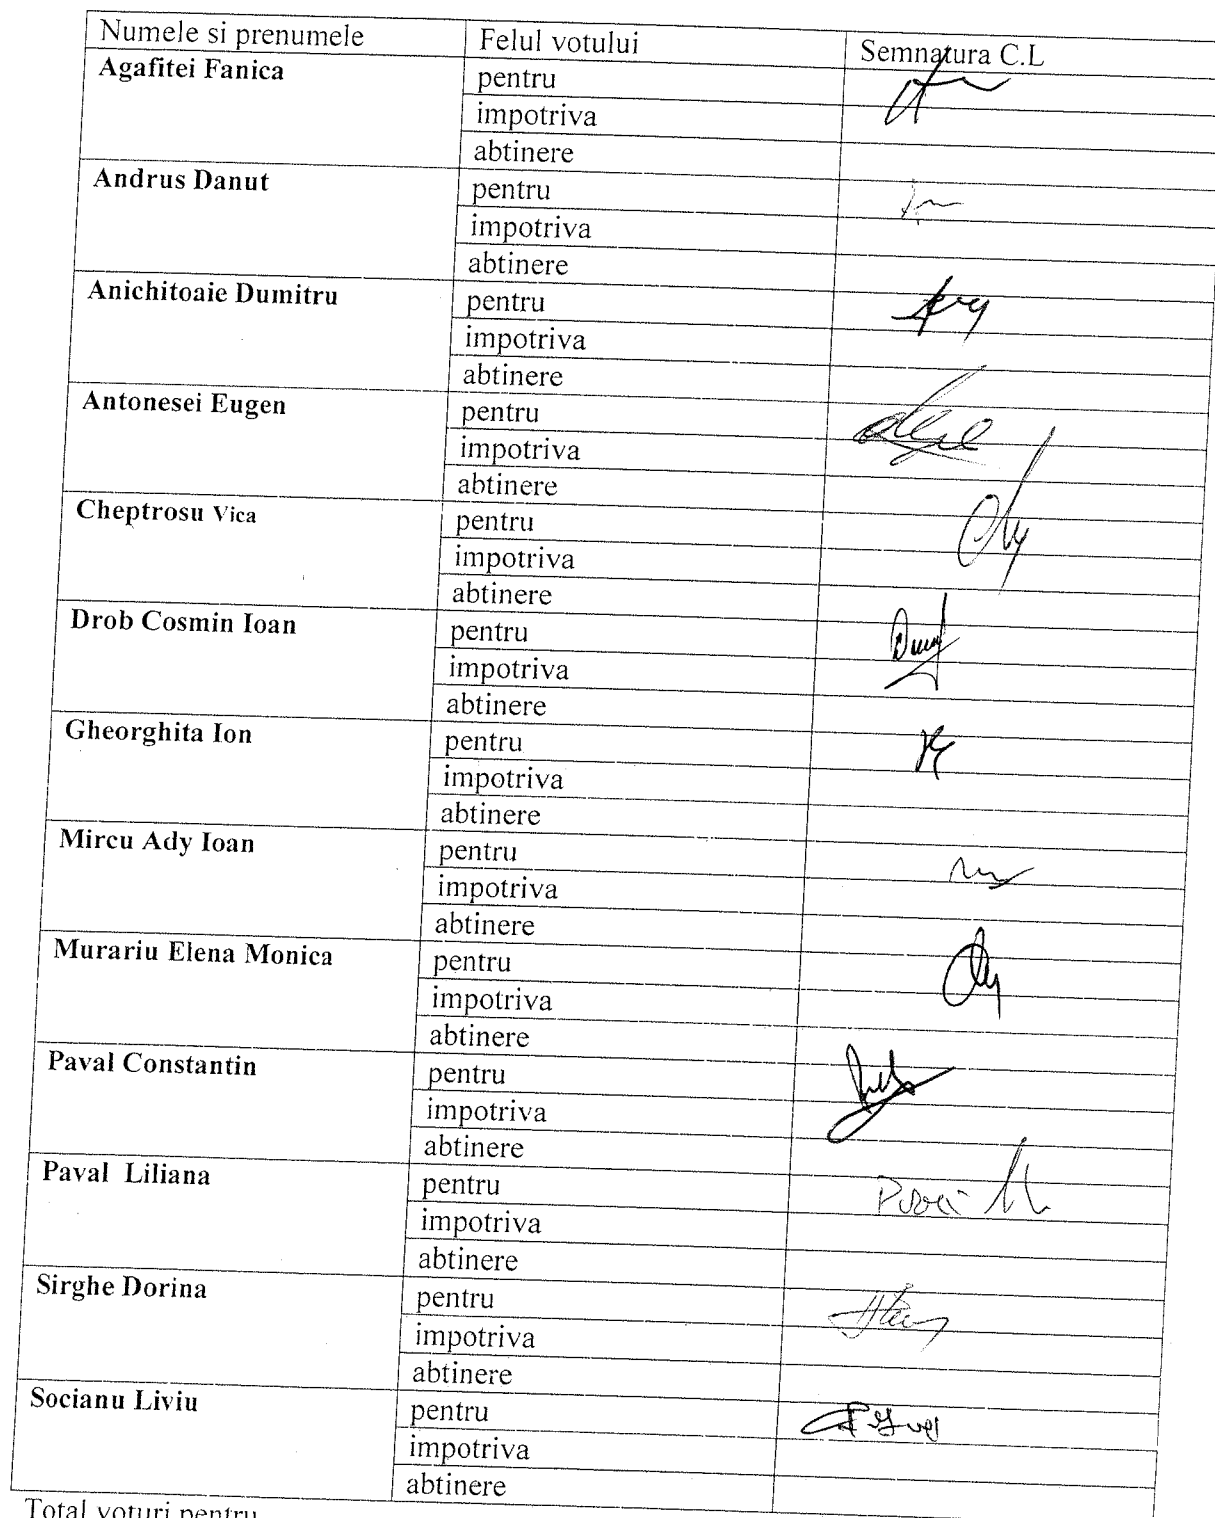 Numele si prenumele Felul votului Semnatura C.L
Agafitei Fanica pentru
impotriva
abtinere
Andrus Danut pentru
impotriva
abtinere
Anichitoaie Dumitru pentru
impotriva
abtinere
Antonesei Eugen pentru
impotriva
abtinere
Cheptrosu Vica pentru
impotriva
abtinere
Drob Cosmin Ioan pentru
impotriva
abtinere
Gheorghita Ion pentru
impotriva
abtinere
Mircu Ady Ioan pentru
impotriva
abtinere
Murariu Elena Monica pentru
impotriva
abtinere
Paval Constantin pentru
impotriva
abtinere
Paval Liliana pentru
impotriva
abtinere
Sirghe Dorina pentru
impotriva
abtinere
Socianu Liviu pentru
impotriva
abtinere
Total voturi pentru